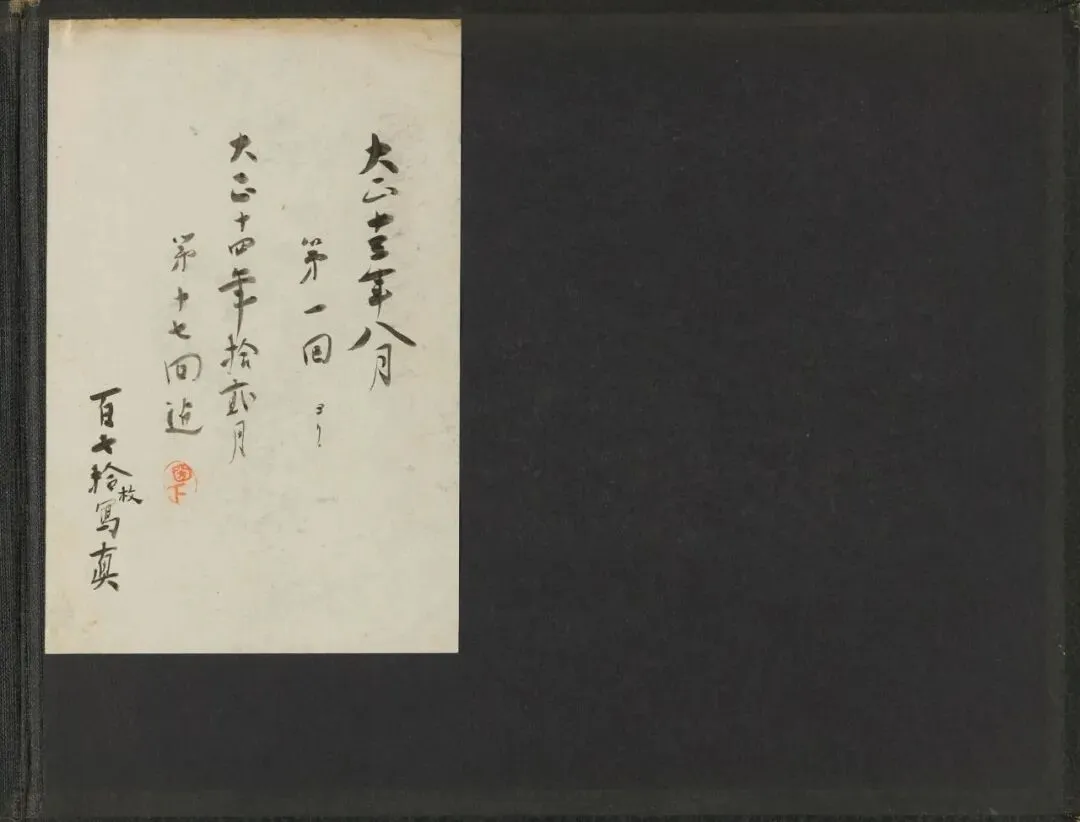 大正十三年八月
第一回ヨリ
大正十四年拾弐月
第十七回迠
百七拾枚寫真